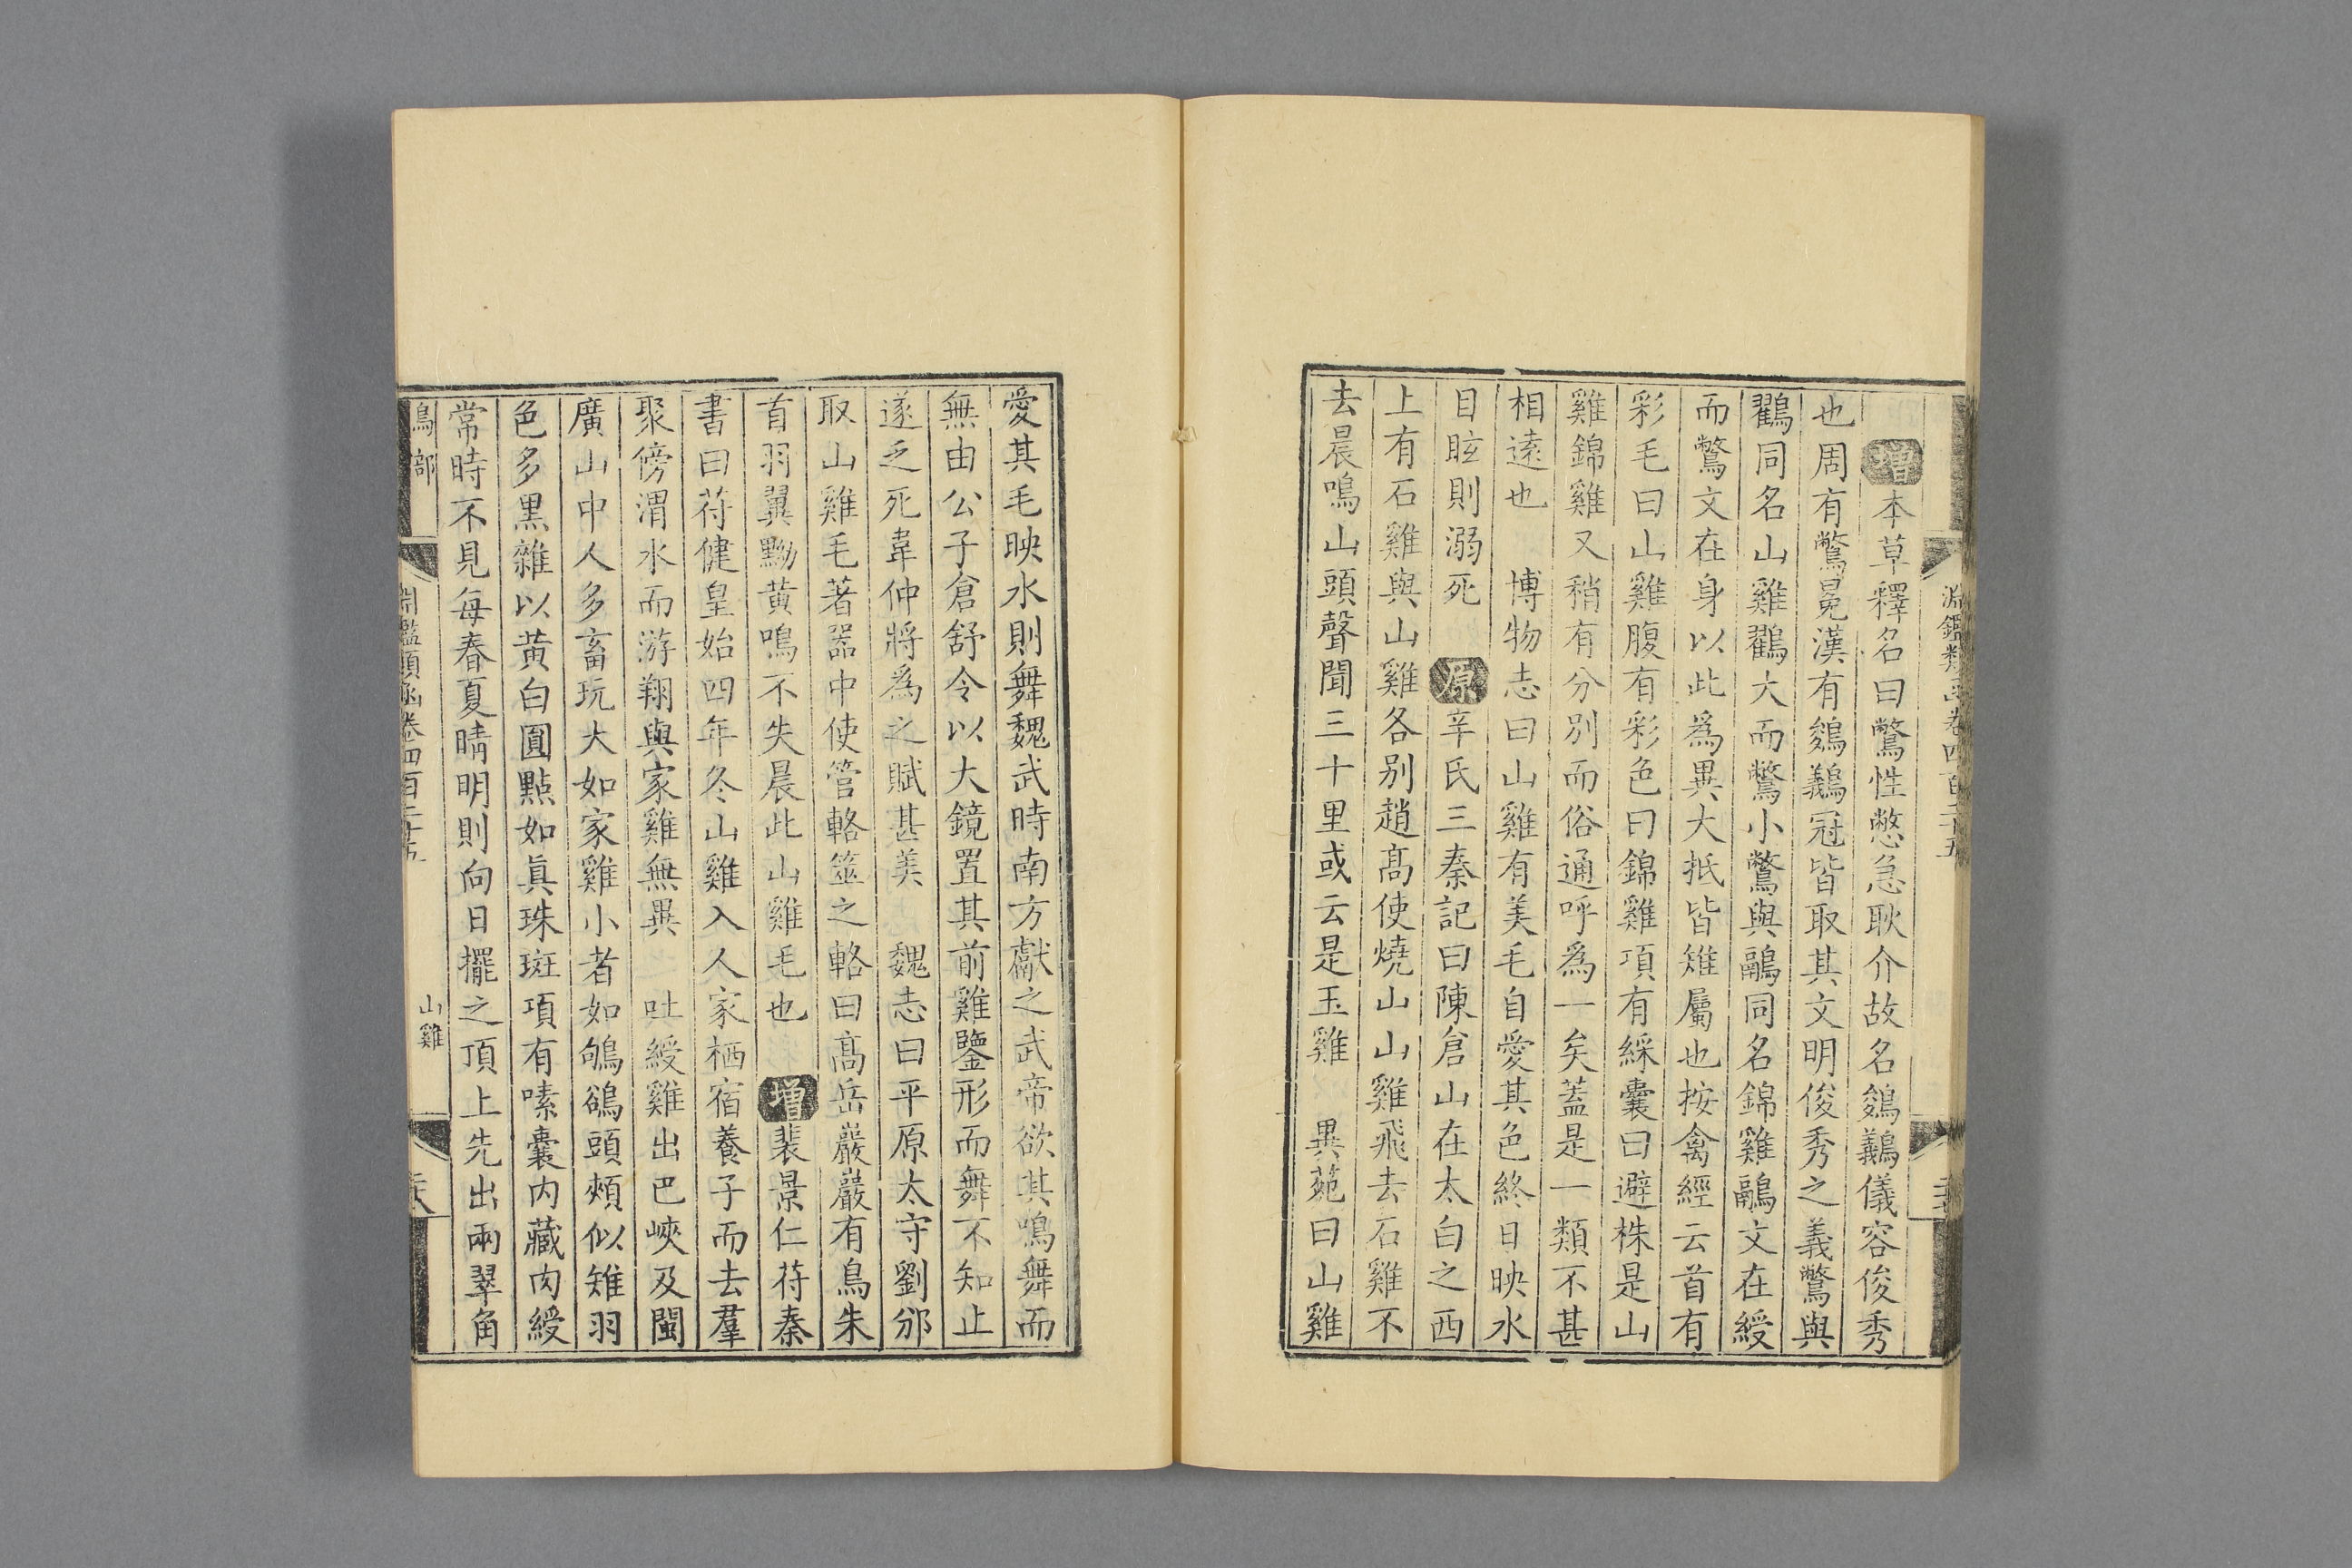 淵鑑類函卷四百二十五
增本草釋名曰鷩性憋急耿介故名鵕鸃儀容俊秀
也周有鷩冕漢有鵕鸃冠皆取其文明俊秀之義鷩與
鸐同名山雞鸐大而鷩小鷩與鷸同名錦雞鷸文在綬
而鷩文在身以此爲異大抵皆雉屬也按禽經云首有
彩毛曰山雞腹有彩色曰錦雞項有綵囊曰避株是山
雞錦雞又稍有分別而俗通呼爲一矣蓋是一類不甚
相遠也　博物志曰山雞有美毛毛自愛其色終日映水
目眩則溺死　原辛氏三秦記曰陳倉山在太白之西
上有石雞與山雞各別趙高使燒山山雞飛去石雞不
去晨鳴山頭聲聞三十里或云是玉雞　異苑曰山雞
愛其毛映水則舞魏武時南方獻之武帝欲其鳴舞而
無由公子倉舒令以大鏡置其前雞鑒形而舞不知止
遂乏死韋仲將爲之賦甚美　魏志曰平原太守劉邠
取山雞毛著器中使管輅筮之輅曰高岳巖巖有鳥朱
首羽翼黝黃鳴不失晨此山雞毛也　增裴景仁苻秦
書曰苻健皇始四年冬山雞入人家栖宿養子而去羣
聚傍渭水而游翔與家雞無異　吐綬雞出巴峽及閩
廣山中人多畜玩大如家雞小者如鴝鵒頭頰似雉羽
色多黑雜以黃白圓點如眞珠斑項有嗉囊內藏肉綬
常時不見每春夏晴明則向日擺之頂上先出兩翠角
鳥部　淵鑑類函卷四百二十五　山雞